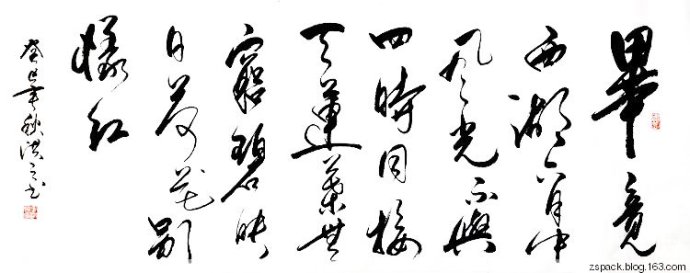 畢竟
西湖六月中
风光不與
四時同接
天蓮葉無
窮碧映
日荷花别
樣红
癸巳年秋洪书
zspack.blog.163.com